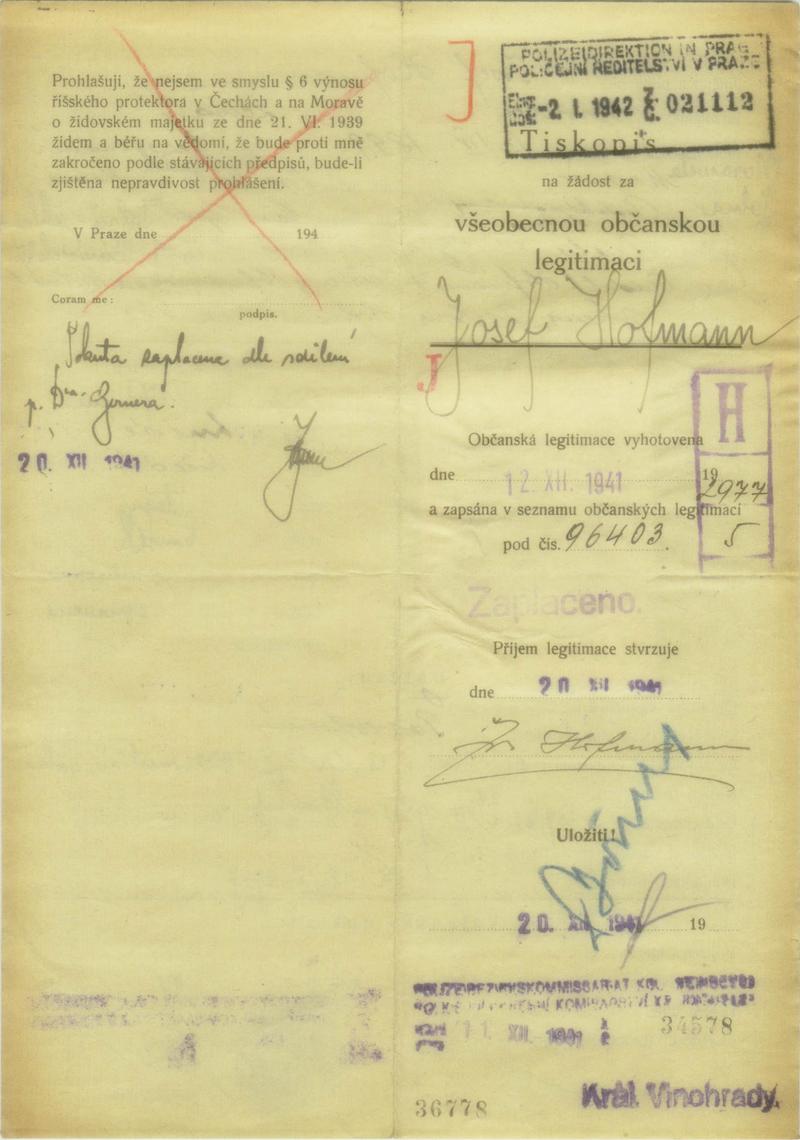 Prohlašuji, že nejsem ve smyslu § 6 výnosu
říšského protektora v Čechách a na Moravě
o židovském majetku ze dne 21. VI. 1939
židem a běřu na vědomí, že bude proti mně
zakročeno podle stávajících předpisů, bude-li
zjištěna nepravdivost prohlášení.
V Praze dne 194
Coram me:
podpis.
zaplacena dle sdělení
p. Dra
20. XII 1941
J
POLIZEIDIREKTION IN PRAG
POLICEJNÍ ŘEDITELSTVÍ V PRAZE
-2. I. 1942 021112
Tiskopis
na žádost za
všeobecnou občanskou
legitimaci
Josef Hofmann
J
H
Občanská legitimace vyhotovena
dne 12. XII. 1941 19
2977
a zapsána v seznamu občanských legitimací
pod čís. 96403. 5
Zaplaceno.
Příjem legitimace stvrzuje
dne 20 XII 1941
Hofmann
Uložiti!
20. XII 1941 19
POLIZEIBEZIRKSKOMMISSARIAT KGL. WEINBERGE
11. XII. 1941 34578
36778 Král. Vinohrady.